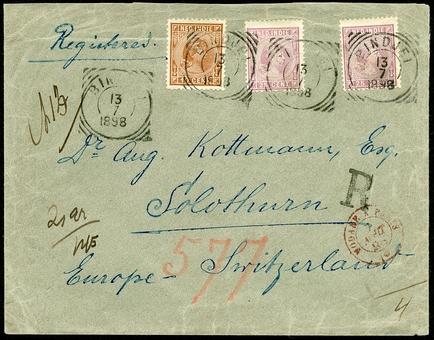 Registered.
NED. INDIE
NED. INDIE
NED. INDIE
BINDJEI
13
7
1898
BINDJEI
13
7
1898
13
7
1898
BINDJEI
13
7
1898
Dr. Aug. Kottmann, Esq.
Solothurn
R
577
Europe - Switzerland
MODANE A PARIS
4